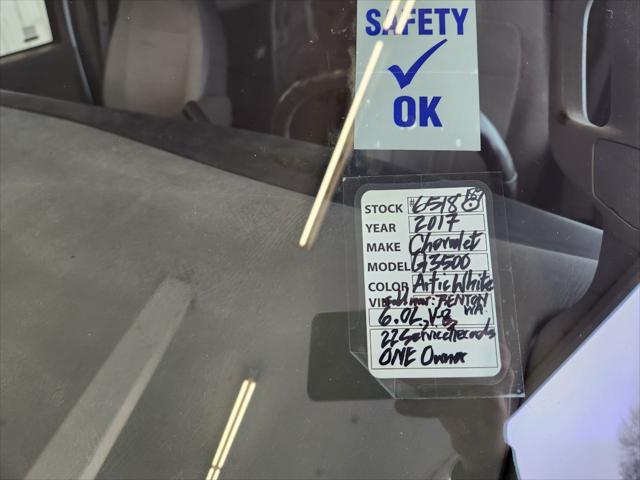 SAFETY
OK
STOCK #6518
YEAR 2017
MAKE Chevrolet
MODEL G3500
COLOR Artic White
VIN RENTON WA
6.0L, V-8
22 Service Records
ONE Owner